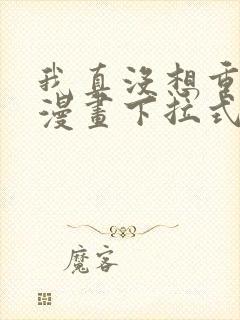 我真沒想重
漫畫下拉式
魔客